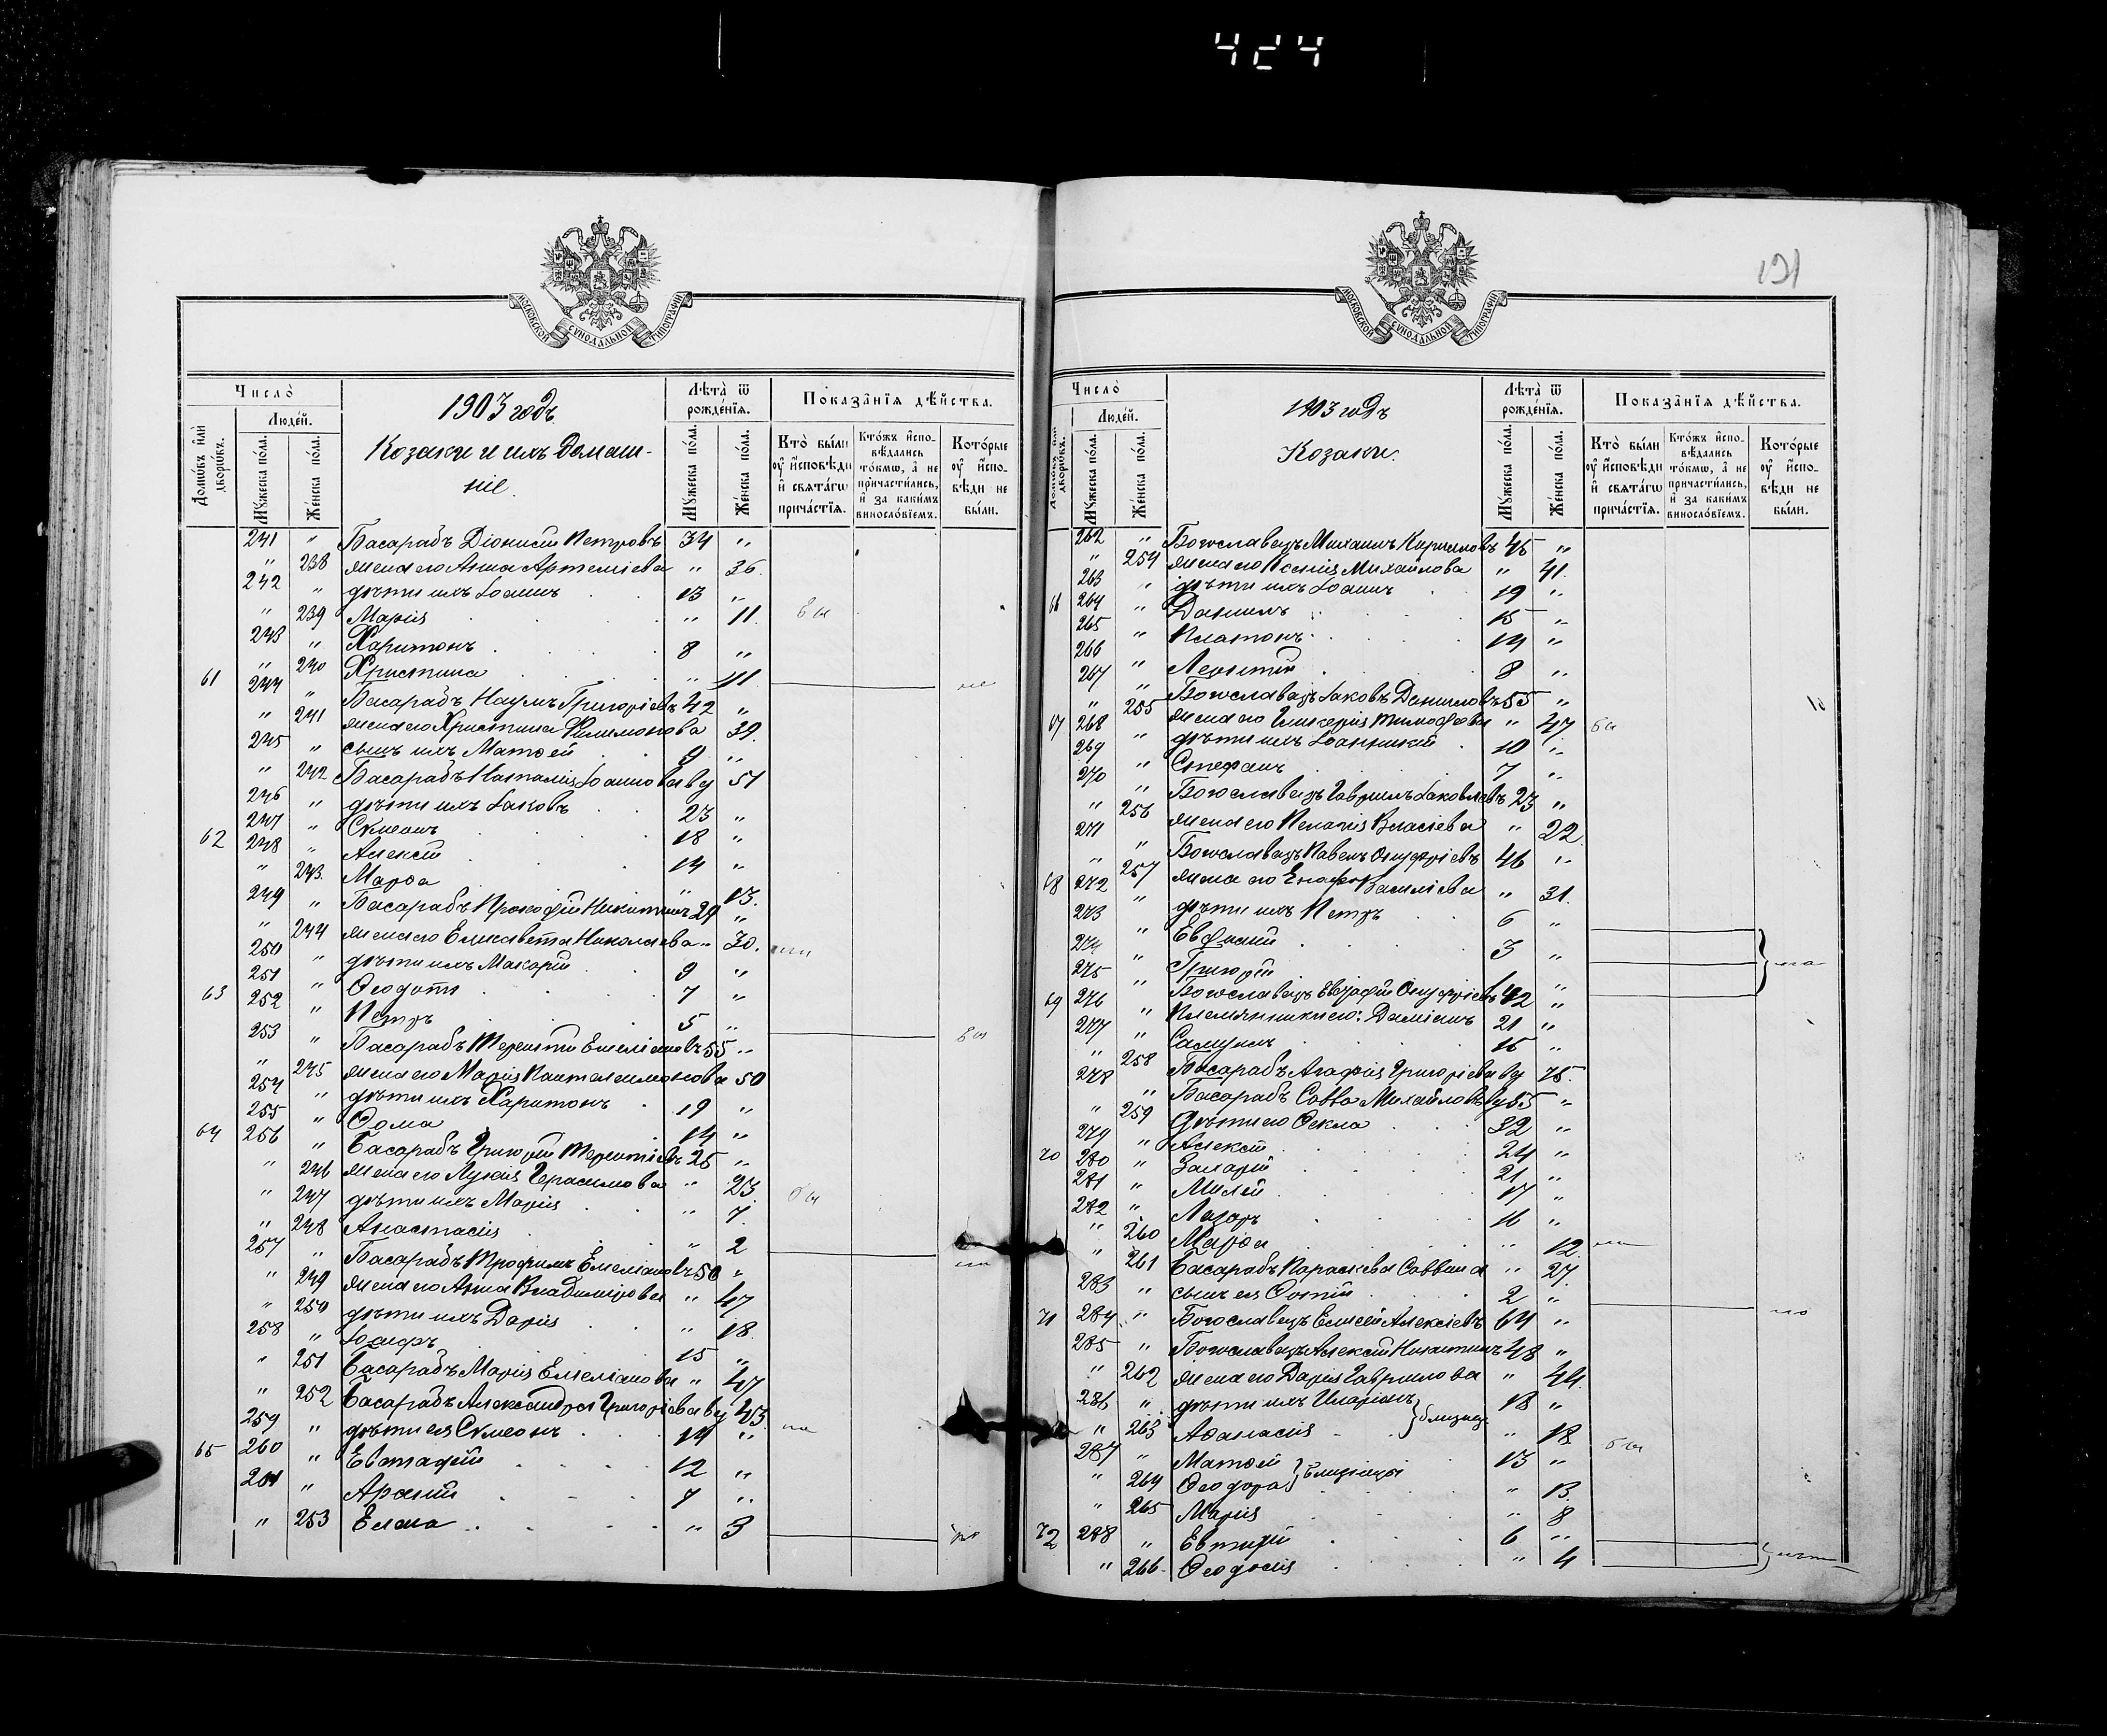 424
МОСКОВСКОЙ СѴНОДАЛЬНОЙ ТИПОГРАФІИ
Число̀
Людей.
Домѡвъ и҆лѝ дворѡвъ.
Мꙋжеска пола.
Женска пола.
1903 годъ
Козаки и ихъ домаш-
ніе.
Лѣта̀ ѿ рожденїѧ.
Мꙋжеска пола.
Женска пола.
Показанїѧ дѣйства.
Кто̀ были ᲂу҆ и҆сповѣди и҆ свѧтагѡ причастїѧ.
Ктожъ и҆сповѣдались токмѡ, а҆ не причастились, и҆ за какимъ винословїемъ.
Которые ᲂу҆ и҆сповѣди не были.
241 " Басарабъ Діонисій Петровъ 34 "
" 238 жена его Анна Артеміева " 36.
242 " дѣти ихъ Іоаннъ 13 "
" 239 Марія " 11.
243 " Харитонъ 8 "
" 240 Христина " 11
61 244 " Басарабъ Наумъ Григоріевъ 42 "
" 241 жена его Христина Филимонова 39.
245 " сынъ ихъ Матѳей 9 "
" 242 Басарабъ Наталія Іоаннова вд 51
246 " дѣти ихъ Іаковъ 23 "
247 " Сѷмеонъ 18 "
62 248 " Алексій 14 "
" 243. Марѳа " 13.
249 " Басарабъ Прокофій Никитинъ 29 "
" 244 жена его Елисавета Николаева " 30.
250 " дѣти ихъ Макарій 9 "
251 " Ѳеодотъ 7 "
63 252 " Петръ 5 "
253 " Басарабъ Терентій Емеліановъ 55 "
" 245 жена его Марія Пантелеимонова 50
254 " дѣти ихъ Харитонъ 19 "
255 " Ѳома 14 "
64 256 " Басарабъ Григорій Терентіевъ 25 "
" 246 жена его Лукія Герасимова " 23.
" 247 дѣти ихъ Марія " 7.
" 248 Анастасія " 2
257 " Басарабъ Трофимъ Емеліановъ 50 "
" 249 жена его Анна Владимірова " 47
" 250 дѣти ихъ Дарія " 18.
258 " Іосифъ 15 "
" 251 Басарабъ Марія Емеліанова " 47
" 252 Басарабъ Александра Григоріева вд 43
259 " дѣти ея Сѷмеонъ 14 "
65 260 " Евстафій 12 "
261 " 7 "
" 253 Елена " 3
131
МОСКОВСКОЙ СѴНОДАЛЬНОЙ ТИПОГРАФІИ
Число̀
Людей.
Домѡвъ и҆лѝ дворѡвъ.
Мꙋжеска пола.
Женска пола.
1903 годъ
Козаки.
Лѣта̀ ѿ рожденїѧ.
Мꙋжеска пола.
Женска пола.
Показанїѧ дѣйства.
Кто̀ были ᲂу҆ и҆сповѣди и҆ свѧтагѡ причастїѧ.
Ктожъ и҆сповѣдались токмѡ, а҆ не причастились, и҆ за какимъ винословїемъ.
Которые ᲂу҆ и҆сповѣди не были.
262 " Богославецъ Михаилъ Кирилловъ 45 "
" 254 жена его Ксенія Михайлова " 41.
263 " дѣти ихъ Іоаннъ 19 "
66 264 " Даниилъ 15 "
265 " Платонъ 14 "
266 " Леонтій 8 "
267 " Богославецъ Іаковъ Данииловъ 55 "
" 255 жена его Гликерія Тимофеева " 47
67 268 " дѣти ихъ Іоанникій 10 "
269 " Стефанъ 7 "
270 " Богославецъ Гавріилъ Іаковлевъ 23 "
" 256 жена его Пелагія Власіева " 22
271 " Богославецъ Павелъ Онуфріевъ 46 "
" 257 жена его Василіева " 31.
68 272 " дѣти ихъ Петръ 6 "
273 " Евфимій 3 "
274 " Григорій "
275 " Богославецъ Евграфій Онуфріевъ 42 "
69 276 " Племянники его: Даміанъ 21 "
277 " Самуилъ 15 "
" 258 Басарабъ Агафія Григоріева вд 75.
278 " Басарабъ Савва Михайловъ вд 55 "
" 259 дѣти его Ѳекла 32 "
279 " Алексій 24 "
70 280 " Захарій 21 "
281 " 17 "
282 " Лазарь 16 "
" 260 Марѳа " 12.
" 261 Басарабъ Параскева Саввина " 27.
283 " сынъ ея Фотій 2 "
71 284 " Богославецъ Елисей Алексіевъ 64 "
285 " Богославецъ Алексій Никитинъ 48 "
" 262 жена его Дарія Гавриилова " 44.
286 " дѣти ихъ Иларіонъ 18 "
близнецы
" 263 Аѳанасія " 18.
287 " Матѳей 13 "
близнецы
" 264 Ѳеодора " 13.
" 265 Марія " 8
72 288 " Евтихій 6 "
" 266 Ѳеодосія " 4